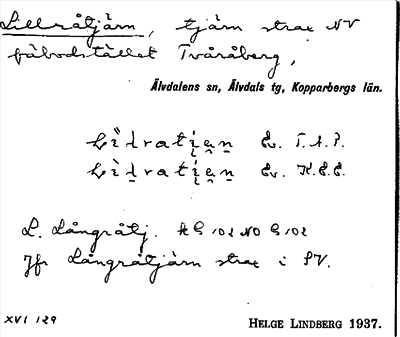 Lillråtjärn, tjärn strax NV
fäbodstället Tvåråberg,
Älvdalens sn, Älvdals tg, Kopparbergs län.
Ev. T.A.P.
Ev. K.E.E.
L. Långråtj. kG 102 NO G 102
Jfr Långråtjärn strax i SV.
XVI 129
HELGE LINDBERG 1937.